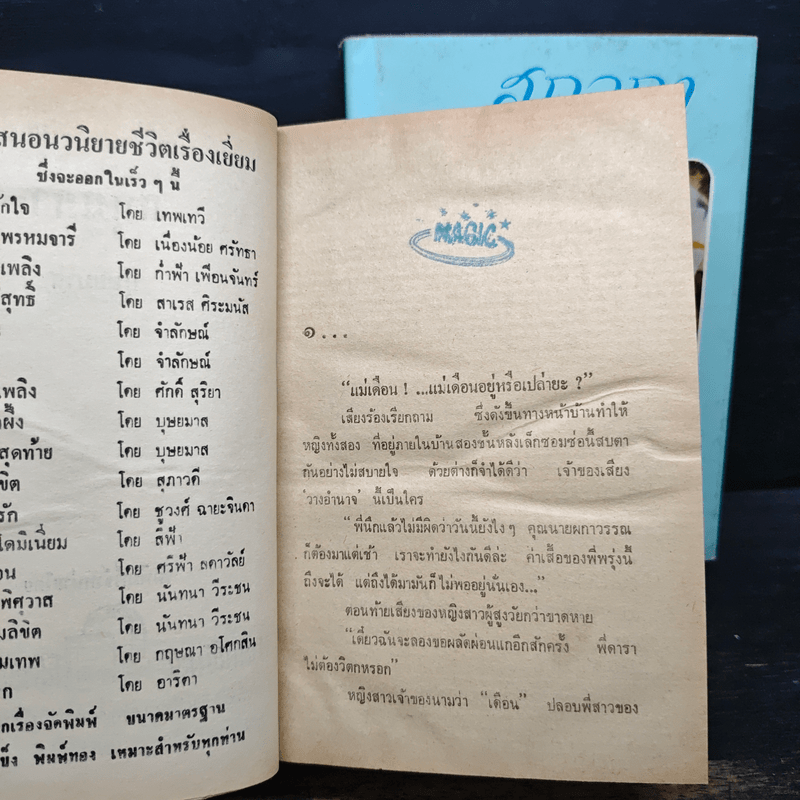 สนอนวนิยายชีวิตเรื่องเยี่ยม
ซึ่งจะออกในเร็ว ๆ นี้
โดย เทพเทวี
พรหมจารี โดย เนื่องน้อย ศรัทธา
เพลิง โดย ก่ำฟ้า เพือนจันทร์
สุทธิ์ โดย สาเรส ศิระมนัส
โดย จำลักษณ์
โดย จำลักษณ์
เพลิง โดย ศักดิ์ สุริยา
โดย บุษยมาส
สุดท้าย โดย บุษยมาส
ขิต โดย สุภาวดี
รัก โดย ชูวงศ์ ฉายะจินดา
โดมิเนี่ยม โดย สีฟ้า
อน โดย ศรีฟ้า ลดาวัลย์
พิศวาส โดย นันทนา วีระชน
มลิขิต โดย นันทนา วีระชน
มเทพ โดย กฤษณา อโศกสิน
ก โดย อาริตา
กเรื่องจัดพิมพ์ ขนาดมาตรฐาน
ข็ง พิมพ์ทอง เหมาะสำหรับทุกท่าน
MAGIC
๑ . . .
“แม่เดือน ! ...แม่เดือนอยู่หรือเปล่ายะ ?”
เสียงร้องเรียกถาม ซึ่งดังขึ้นทางหน้าบ้านทำให้
หญิงทั้งสอง ที่อยู่ภายในบ้านสองชั้นหลังเล็กซอมซ่อนี้สบตา
กันอย่างไม่สบายใจ ด้วยต่างก็จำได้ดีว่า เจ้าของเสียง
‘วางอำนาจ’ นี้เป็นใคร
“พี่นึกแล้วไม่มีผิดว่าวันนี้ยังไงๆ คุณนายผกาวรรณ
ก็ต้องมาแต่เช้า เราจะทำยังไงกันดีล่ะ ค่าเสื้อของพี่พรุ่งนี้
ถึงจะได้ แต่ถึงได้มามันก็ไม่พออยู่นั่นเอง...”
ตอนท้ายเสียงของหญิงสาวผู้สูงวัยกว่าขาดหาย
“เดี๋ยวฉันจะลองขอผลัดผ่อนแกอีกสักครั้ง พี่ดารา
ไม่ต้องวิตกหรอก”
หญิงสาวเจ้าของนามว่า “เดือน” ปลอบพี่สาวของ